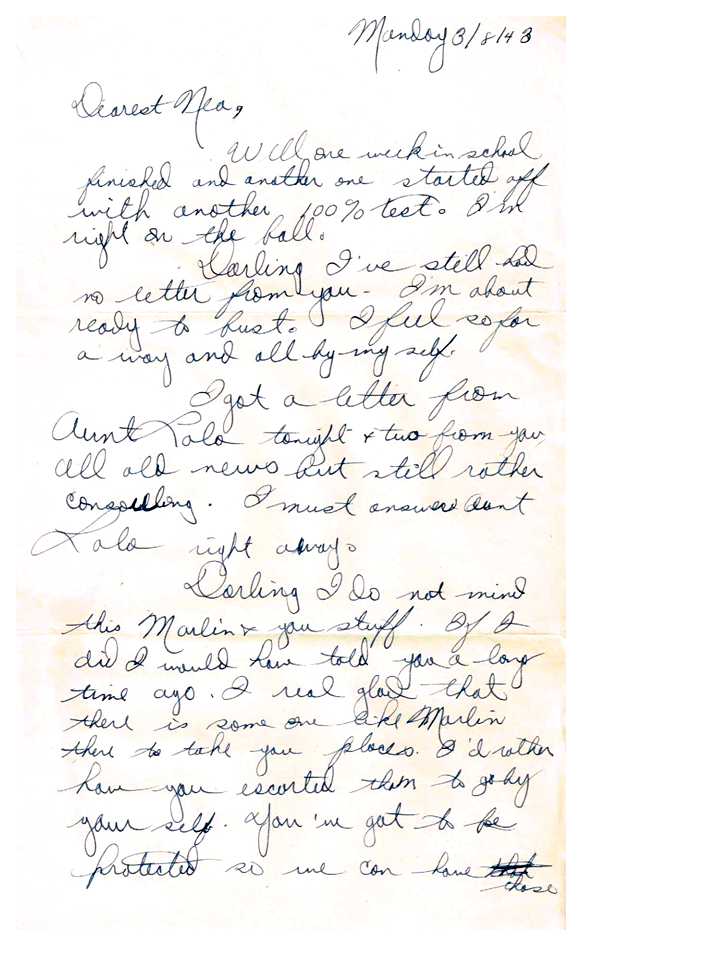 Monday 3/8/43
Dearest Nea,
Well one week in school
finished and another one started off
with another 100% test. I'm
right on the ball.
Darling I've still had
no letter from you. I'm about
ready to bust. I feel so far
a way and all by my self.
I got a letter from
Aunt Lala tonight + two from you,
all old news but still rather
. I must answer Aunt
Lala right away.
Darling I do not mind
this Marlin + you stuff. If I
did I would have told you a long
time ago. I real glad that
there is some one like Marlin
there to take you places. I'd rather
have you escorted them to go by
your self. You've got to be
protected so we can have
those